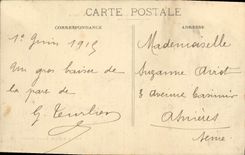 CARTE POSTALE
CORRESPONDANCE
ADRESSE
1er Juin 1915
Un gros baiser de
la part de
G.
Mademoiselle
Suzanne
3 Avenue Casimir
Asnières
Seine